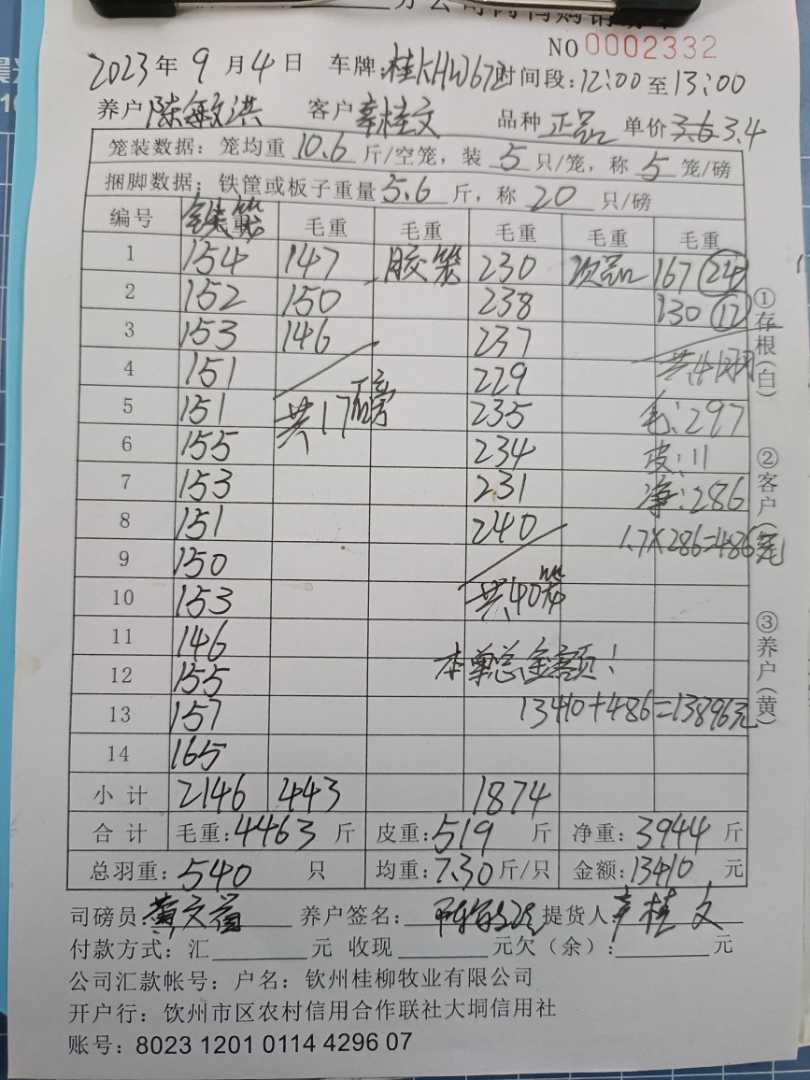 分公司肉鸭购销场单
NO 0002332
2023年9月4日 车牌:桂KHW672 时间段:12:00至13:00
养户 陈敏洪 客户 辛桂文 品种 正品 单价 3.6 3.4
笼装数据: 笼均重 10.6 斤/空笼, 装 5 只/笼, 称 5 笼/磅
捆脚数据: 铁筐或板子重量 5.6 斤, 称 20 只/磅
编号 铁笼 毛重 毛重 毛重 毛重 毛重
1 154 147 胶笼 230 次品 167 (24)
2 152 150 238 130 (17)
3 153 146 237
4 151 229 共41只
5 151 共17磅 235 毛:297
6 155 234 皮:11
7 153 231 净:286
8 151 240 1.7×286=486元
9 150
10 153 共40笼
11 146
12 155 本单总金额:
13 157 13410+486=13896元
14 165
小计 2146 443 1874
合计 毛重:4463 斤 皮重:519 斤 净重:3944 斤
总羽重:540 只 均重:7.30斤/只 金额:13410 元
①存根(白)
②客户(
③养户(黄)
司磅员: 养户签名: 提货人 辛桂文
付款方式:汇 元 收现 元欠(余): 元
公司汇款帐号: 户名: 钦州桂柳牧业有限公司
开户行: 钦州市区农村信用合作联社大垌信用社
账号: 8023 1201 0114 4296 07